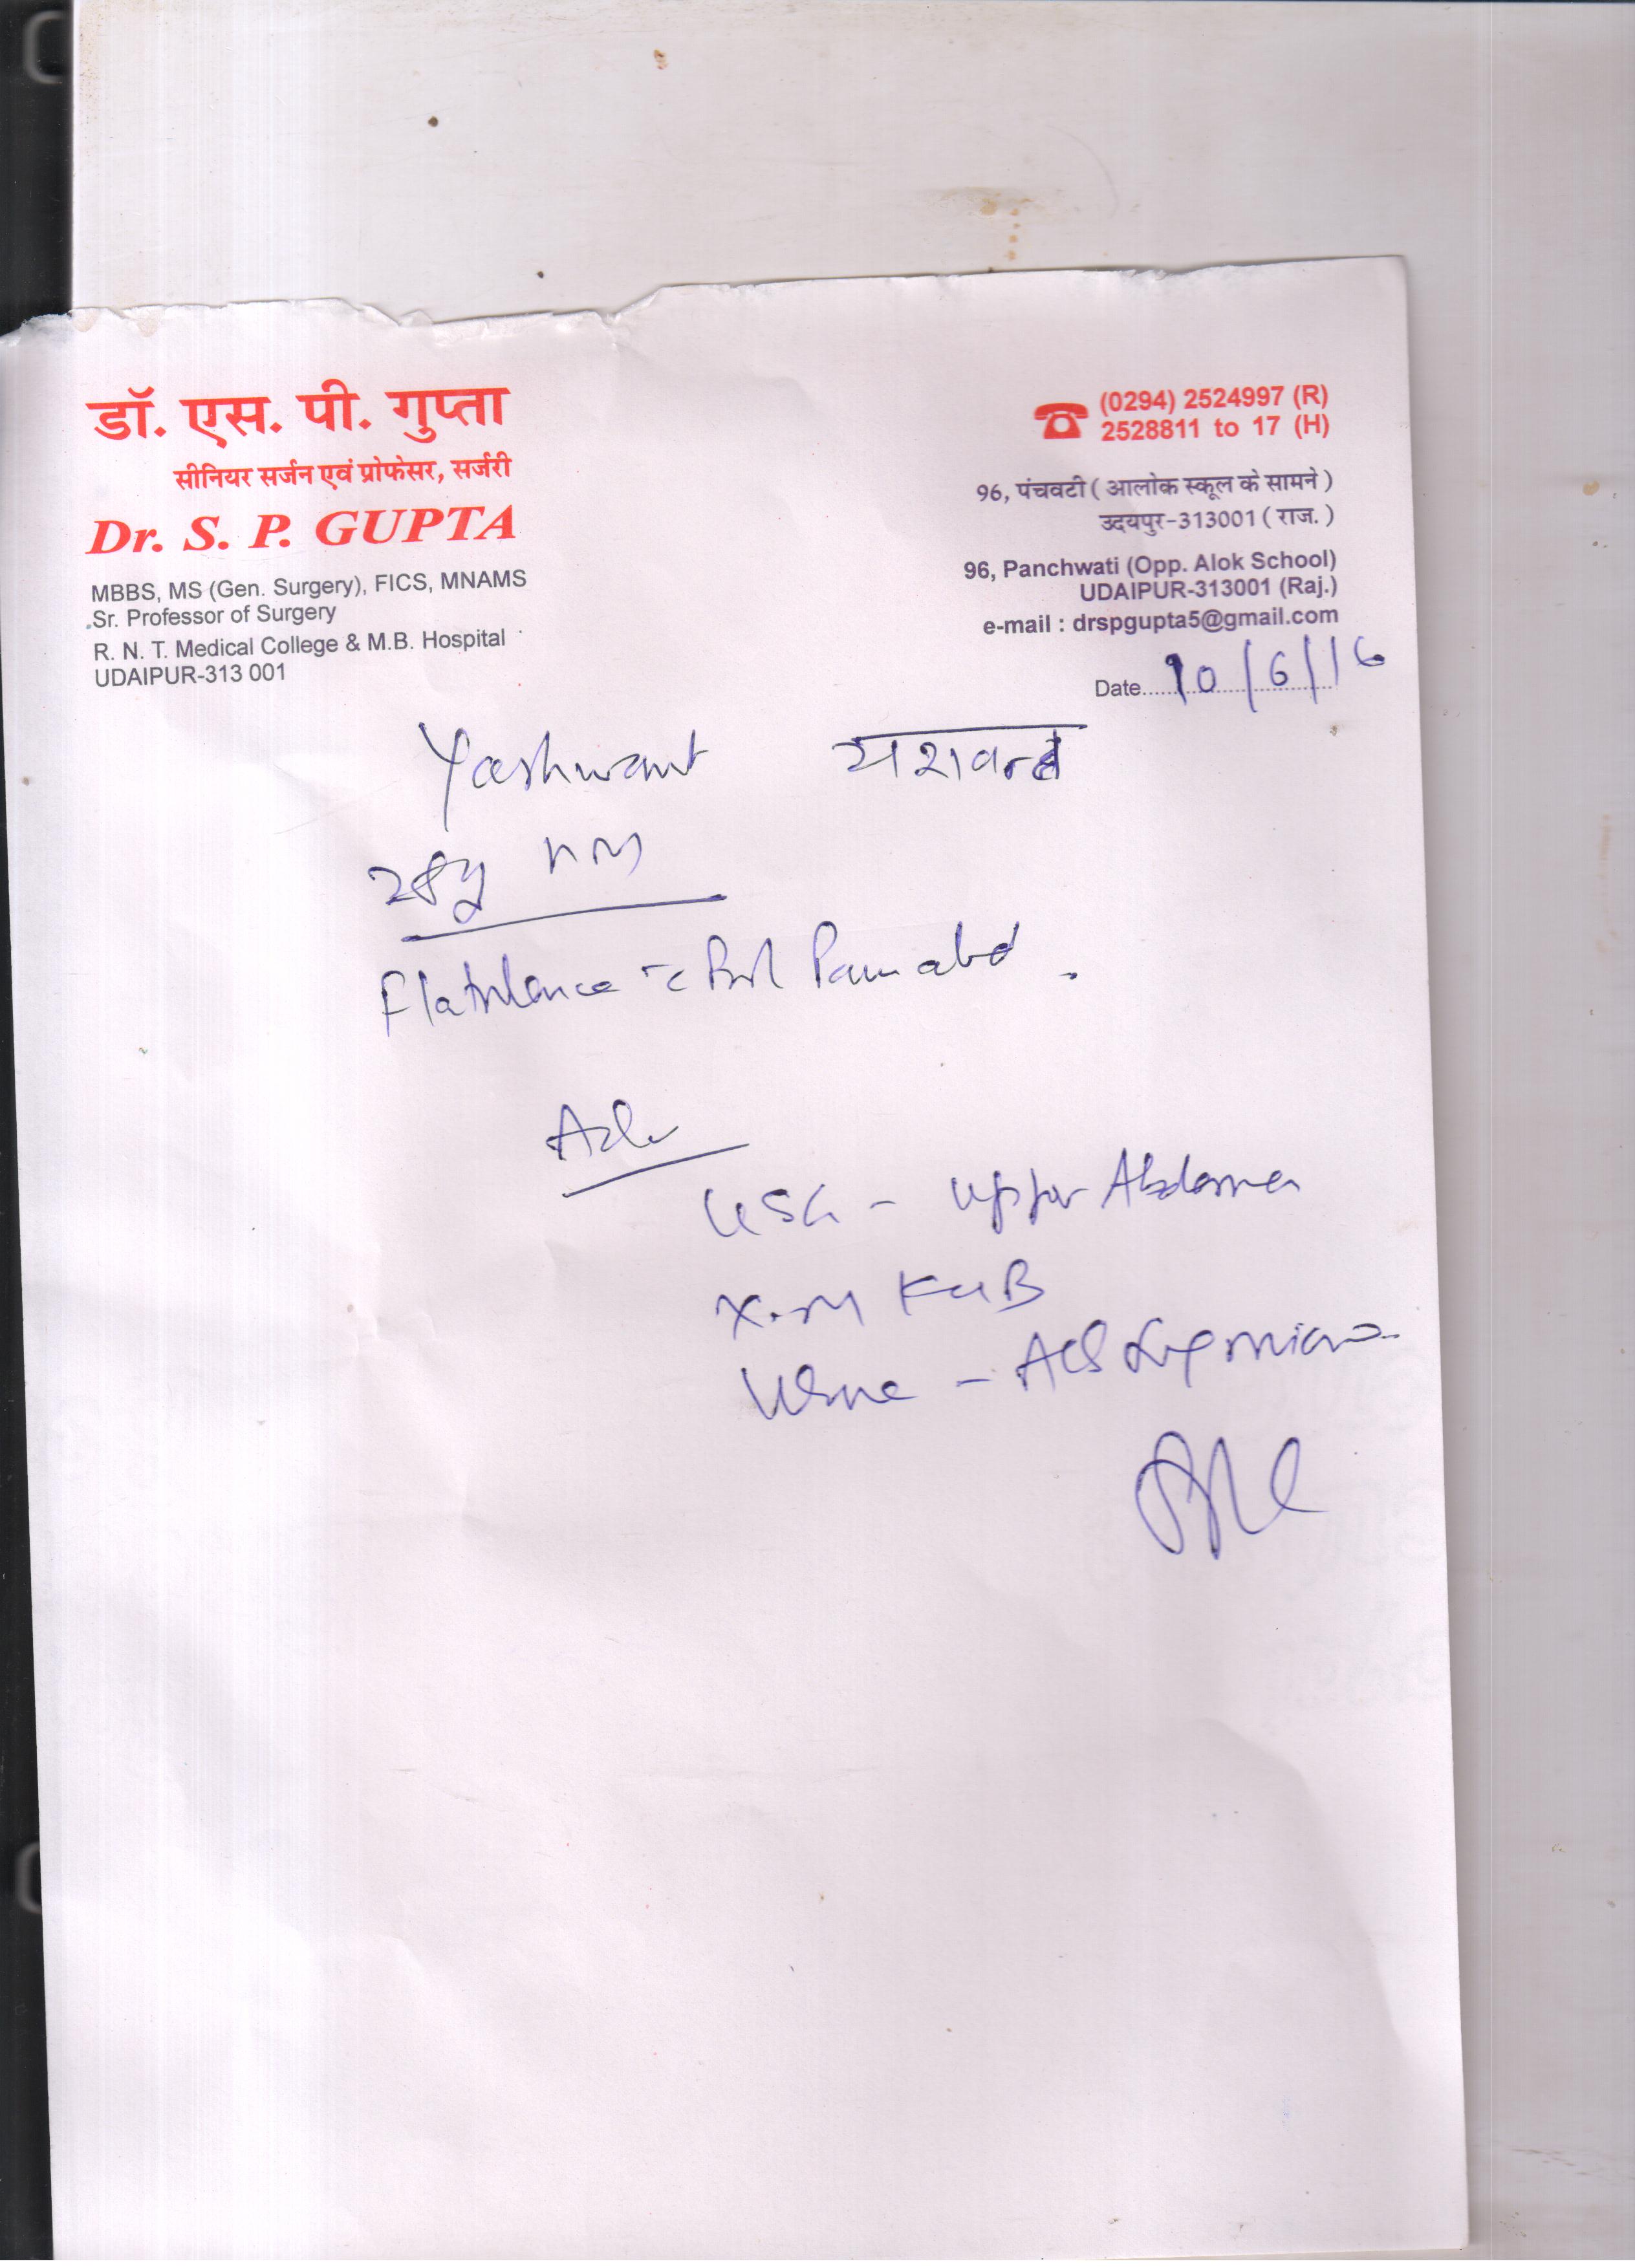 डॉ. एस. पी. गुप्ता
सीनियर सर्जन एवं प्रोफेसर, सर्जरी
Dr. S. P. GUPTA
MBBS, MS (Gen. Surgery), FICS, MNAMS
Sr. Professor of Surgery
R. N. T. Medical College & M.B. Hospital
UDAIPUR-313 001
(0294) 2524997 (R)
2528811 to 17 (H)
96, पंचवटी ( आलोक स्कूल के सामने )
उदयपुर-313001 ( राज. )
96, Panchwati (Opp. Alok School)
UDAIPUR-313001 (Raj.)
e-mail : drspgupta5@gmail.com
Date 10/6/16
Yashwant यशवन्त
28y
Flatulence c Pain abd.
Adv
USG - Upper Abdomen
X-ray KUB
Urine - micro